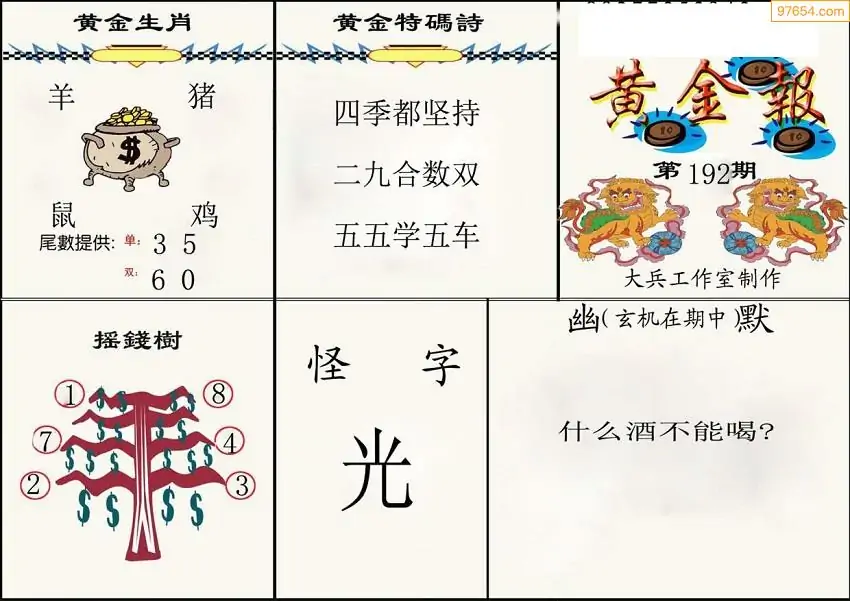 黄金生肖
羊 猪
$
鼠 鸡
尾數提供: 单: 3 5
双: 6 0
黄金特碼詩
四季都坚持
二九合数双
五五学五车
97654.com
黄金報
10
10
10
第192期
大兵工作室制作
摇錢樹
① ⑧
⑦ ④
② ③
怪 字
光
幽(玄机在期中)默
什么酒不能喝?